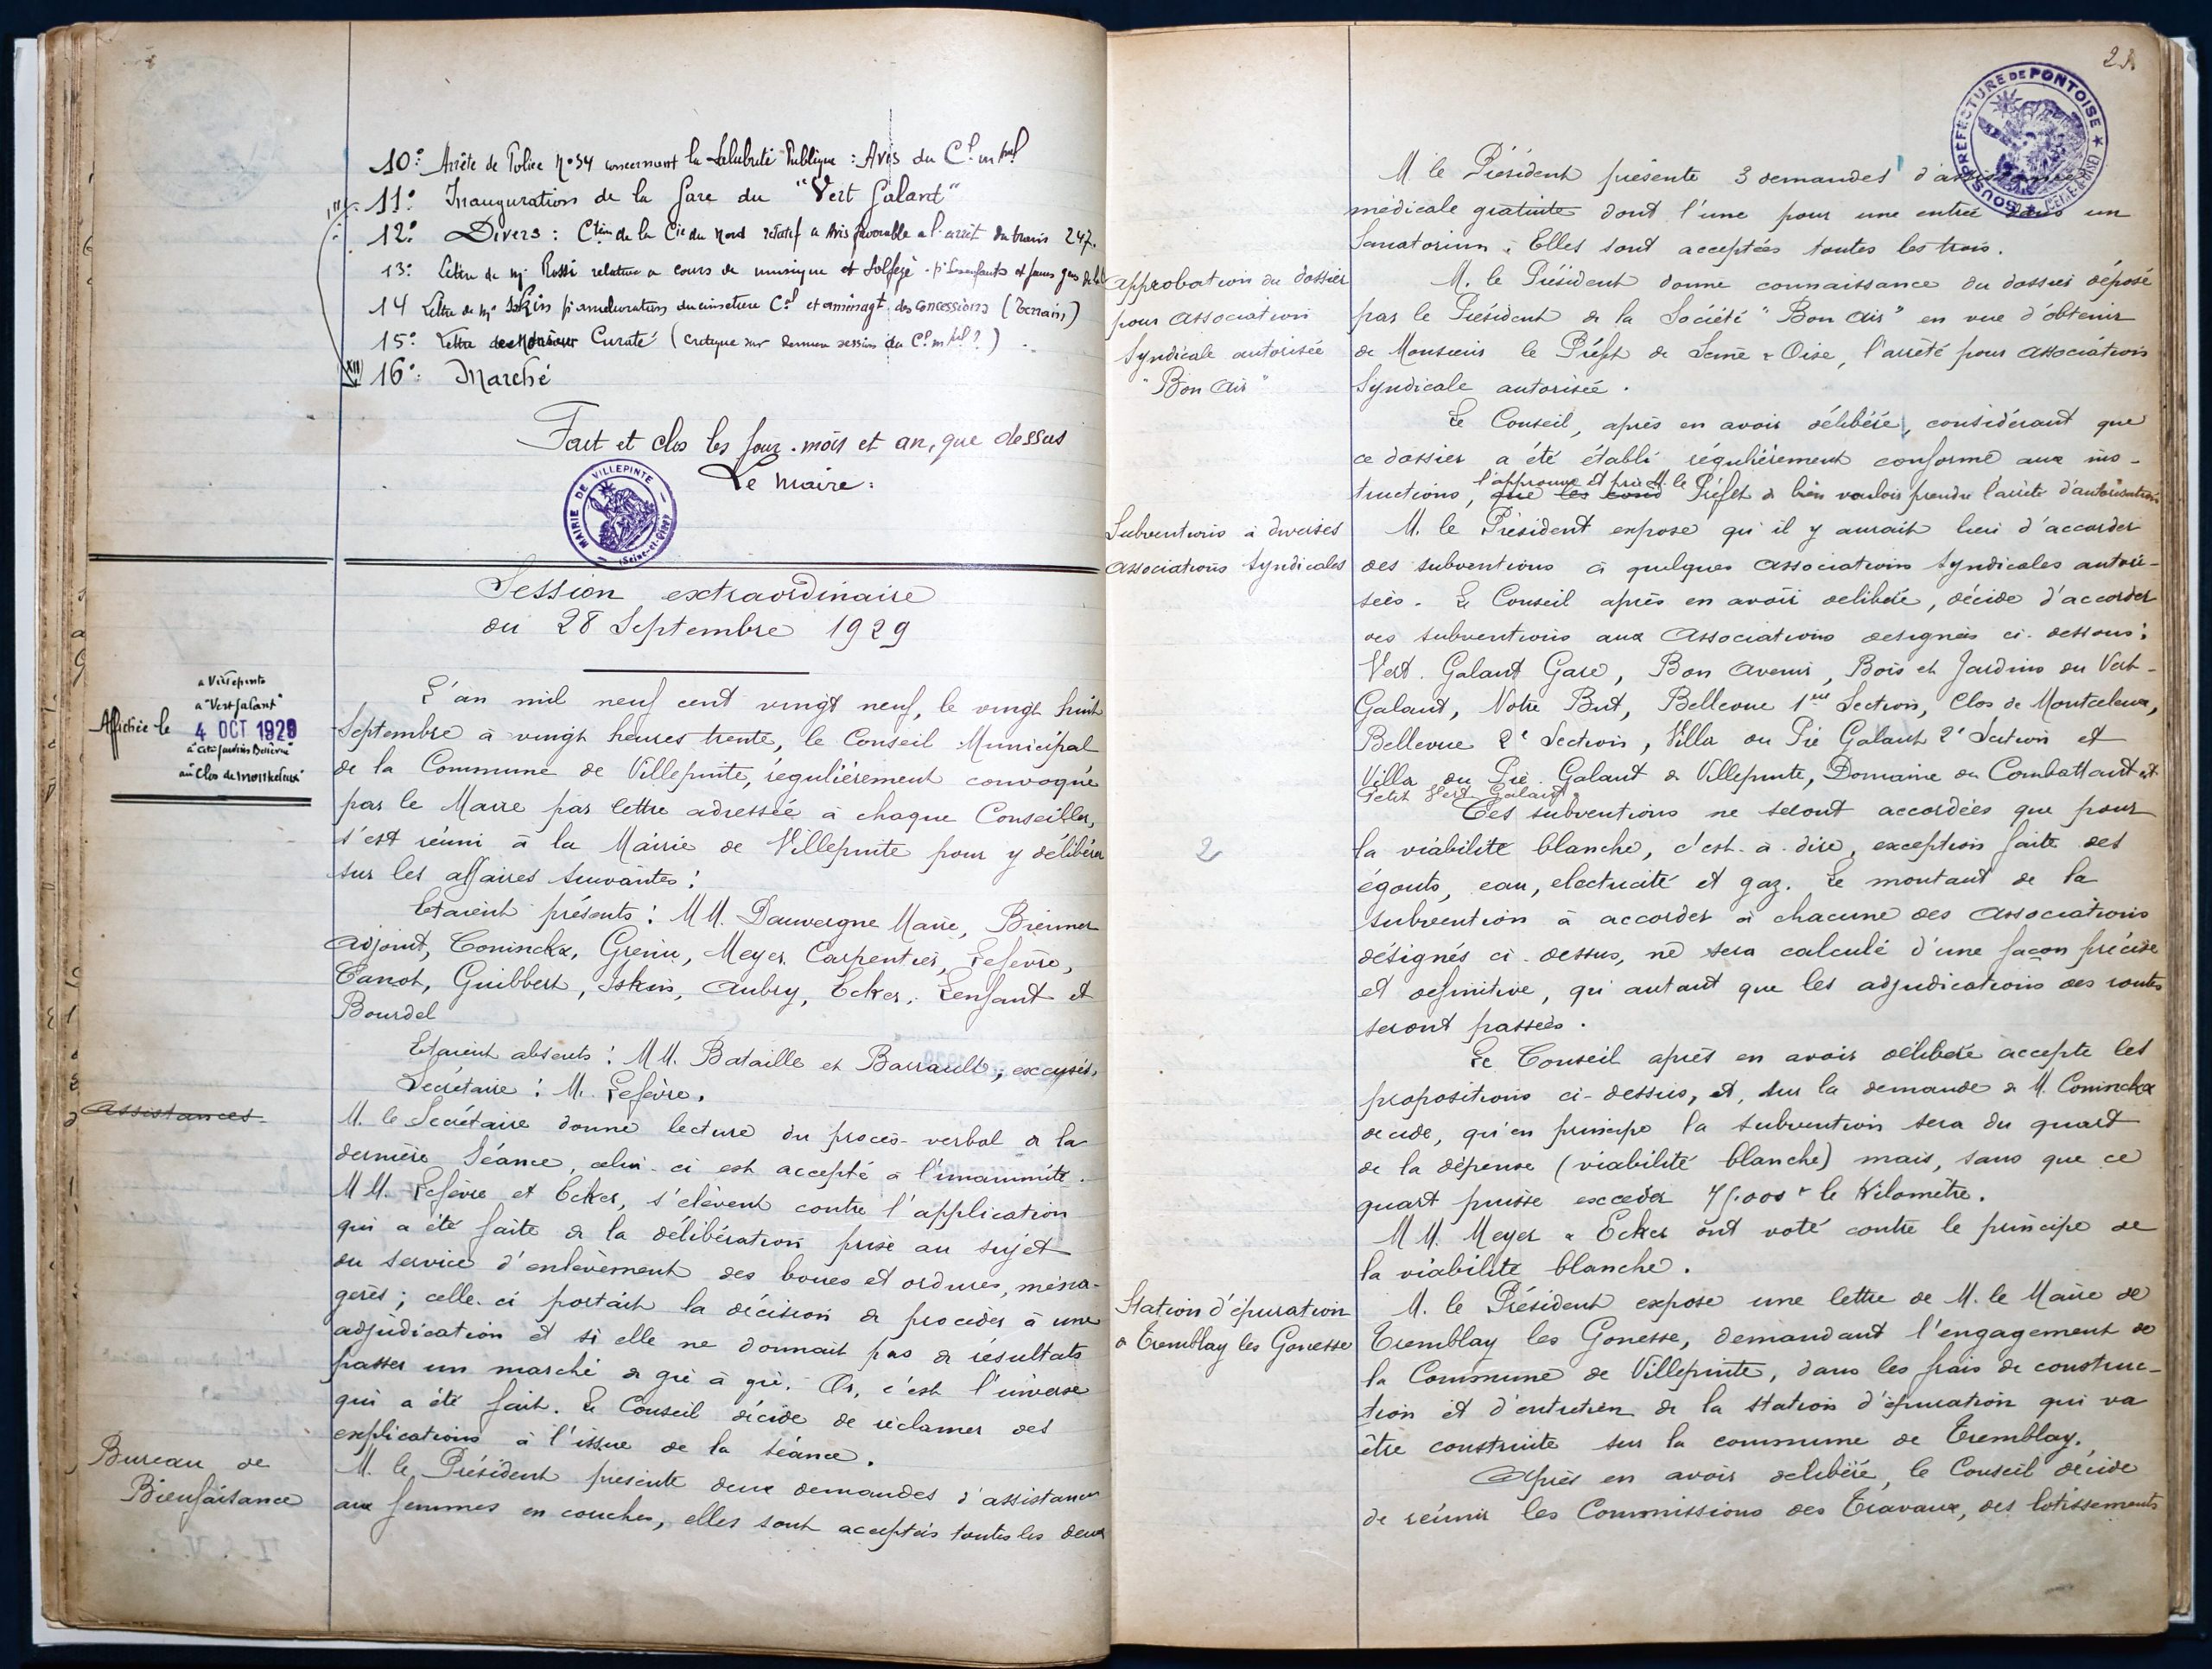 10° Arrêté de Police N°34 concernant la Salubrité Publique : Avis du Cl mpal
11° Inauguration de la Gare du "Vert Galant"
12° Divers : Cion de la Cie du Nord relatif a Avis favorable a l'arrêt du train 247.
13° Lettre de Mr Rossi relative a cours de musique et Solfège pr les enfants et jeunes gens de la
14 Lettre de Mr Iskin pr amélioration du cimetière Cal et aménagt des Concessions (Terrains)
15° Lettre de Monsieur Curaté (Critique sur dernière session du Cl mpal ?)
XII 16° Marché
Fait et clos les jour. mois et an, que dessus
Le Maire :
MAIRIE DE VILLEPINTE
(Seine-et-Oise)
Session extraordinaire
du 28 Septembre 1929
a Villepinte
a "Vert Galant"
Affichée le 4 OCT 1929
a Cité Jardins Bellevue
au Clos de Montceleux
L'an mil neuf cent vingt neuf, le vingt huit
Septembre à vingt heures trente, le Conseil Municipal
de la Commune de Villepinte, régulièrement convoqué
par le Maire par lettre adressée à chaque Conseiller,
s'est réuni à la Mairie de Villepinte pour y délibérer
sur les affaires suivantes :
Etaient présents : MM. Dauvergne Maire, Brenner
Adjoint, Coninckx, Grenu, Meyer, Carpentier, Lefèvre,
Canot, Guibbert, Iskin, Aubry, Ecker, Lenfant et
Bourdel
Etaient absents : MM. Bataille et Barrault, excusés,
Secrétaire : M. Lefèvre.
Assistances
M. le Secrétaire donne lecture du procès-verbal de la
dernière Séance, celui-ci est accepté à l'unanimité.
MM. Lefèvre et Ecker, s'élèvent contre l'application
qui a été faite de la délibération prise au sujet
du service d'enlèvement des boues et ordures, ména-
gères ; celle-ci portait la décision de procéder à une
adjudication et si elle ne donnait pas de résultats
passer un marché de gré à gré. Or, c'est l'inverse
qui a été fait. Le Conseil décide de réclamer des
explications à l'issue de la séance.
Bureau de
Bienfaisance
M. le Président présente deux demandes d'assistance
aux femmes en couches, elles sont acceptées toutes les deux
SOUS-PREFECTURE DE PONTOISE
(SEINE-&-OISE)
M. le Président présente 3 demandes d'assistance
médicale gratuite dont l'une pour une entrée dans un
Sanatorium. Elles sont acceptées toutes les trois.
Approbation du dossier
pour Association
Syndicale autorisée
"Bon Air"
M. le Président donne connaissance du dossier déposé
par le Président de la Société "Bon Air" en vue d'obtenir
de Monsieur le Préfet de Seine & Oise, l'arrêté pour Association
Syndicale autorisée.
Le Conseil, après en avoir délibéré, considérant que
ce dossier a été établi régulièrement conforme aux ins-
tructions, que les cond l'approuve et prie M. le Préfet de bien vouloir prendre l'arrêté d'autorisation
Subventions à diverses
Associations Syndicales
M. le Président expose qu'il y aurait lieu d'accorder
des subventions à quelques Associations Syndicales autori-
sées. Le Conseil après en avoir délibéré, décide d'accorder
des subventions aux Associations désignées ci-dessous :
Vert-Galant Gare, Bon Avenir, Bois et Jardins du Vert-
Galant, Notre But, Bellevue 1ere Section, Clos de Montceleux,
Bellevue 2e Section, Villa du Pré Galant 2e Section et
Villa du Pré-Galant de Villepinte, Domaine du Combattant et
Petit Vert Galant.
Ces subventions ne seront accordées que pour
2
la viabilité blanche, c'est-à-dire, exception faite des
égouts, eau, électricité et gaz. Le montant de la
subvention à accorder à chacune des Associations
désignés ci-dessus, ne sera calculé d'une façon précise
et définitive, qu'autant que les adjudications des routes
seront passées.
Le Conseil après en avoir délibéré accepte les
propositions ci-dessus, et, sur la demande de M. Coninckx
décide, qu'en principe la subvention sera du quart
de la dépense (viabilité blanche) mais, sans que ce
quart puisse excéder 75.000 f le Kilomètre.
MM. Meyer & Ecker ont voté contre le principe de
la viabilité blanche.
Station d'épuration
à Tremblay les Gonesse
M. le Président expose une lettre de M. le Maire de
Tremblay les Gonesse, demandant l'engagement de
la Commune de Villepinte, dans les frais de construc-
tion et d'entretien de la station d'épuration qui va
être construite sur la commune de Tremblay.
Après en avoir délibéré, le Conseil décide
de réunir les Commissions des Travaux, des lotissements